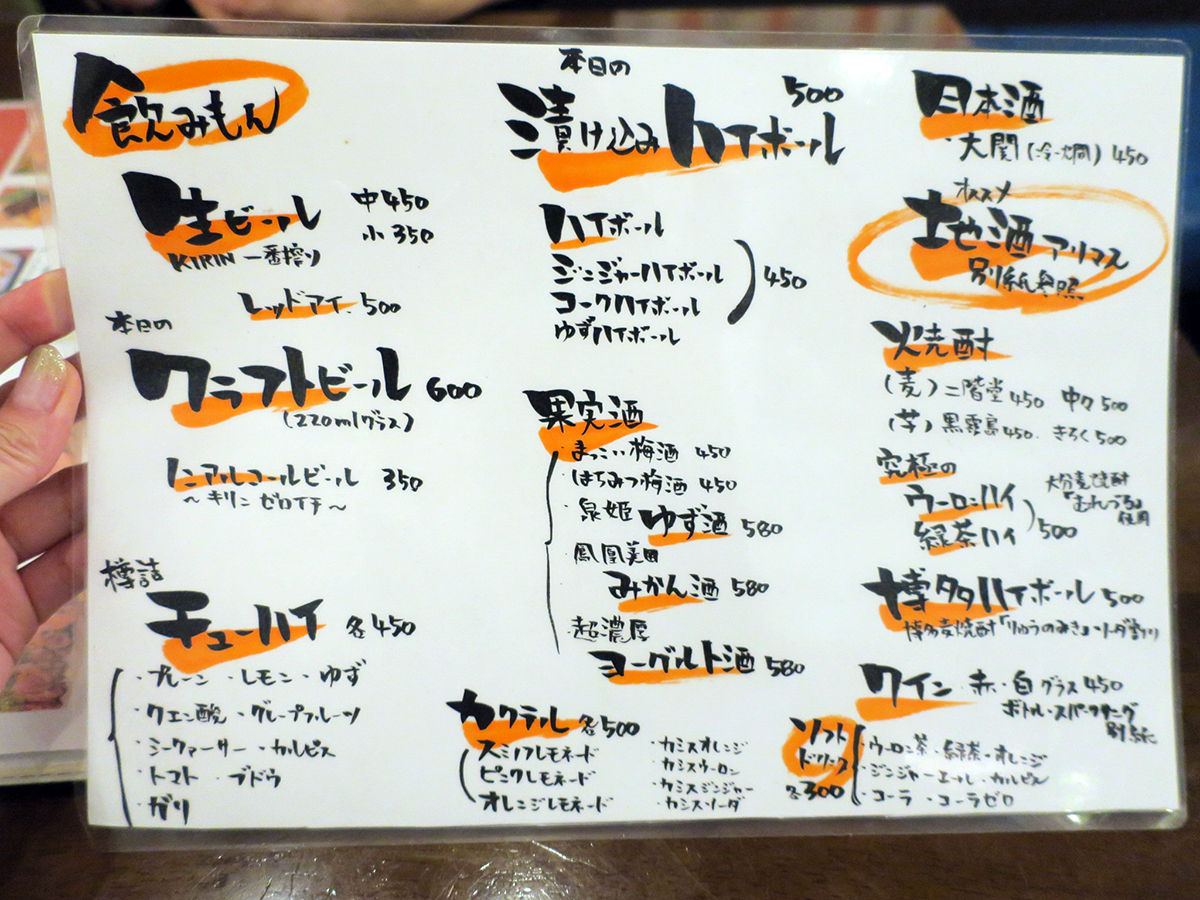 飲みもん
生ビール 中450
小350
KIRIN 一番搾り
レッドアイ 500
本日の
クラフトビール 600
(220mlグラス)
ノンアルコールビール 350
～キリン ゼロイチ～
樽詰
チューハイ 各450
・プレーン ・レモン ・ゆず
・クエン酸 ・グレープフルーツ
・シークァーサー ・カルピス
・トマト ・ブドウ
・ガリ
本日の
漬け込みハイボール 500
ハイボール
ジンジャーハイボール
コークハイボール
ゆずハイボール
450
果実酒
・まっこい梅酒 450
・はちみつ梅酒 450
・泉姫 ゆず酒 580
・鳳凰美田
みかん酒 580
超濃厚
ヨーグルト酒 580
カクテル 各500
スミノフレモネード
ピンクレモネード
オレンジレモネード
・カシスオレンジ
・カシスウーロン
・カシスジンジャー
・カシスソーダ
日本酒
・大関(冷・燗) 450
オススメ
地酒アリマス
別紙参照
焼酎
(麦) 二階堂 450 中々 500
(芋) 黒霧島 450. きろく 500
究極の
ウーロンハイ
緑茶ハイ
500
大分麦焼酎
「むれづる」
使用
博多ハイボール 500
博多麦焼酎「りゅうのみさき」ソーダ割り
ワイン 赤・白 グラス 450
ボトル・スパークリング
別紙
ソフト
ドリンク
各300
・ウーロン茶・緑茶・オレンジ
・ジンジャーエール・カルピス
・コーラ ・コーラゼロ